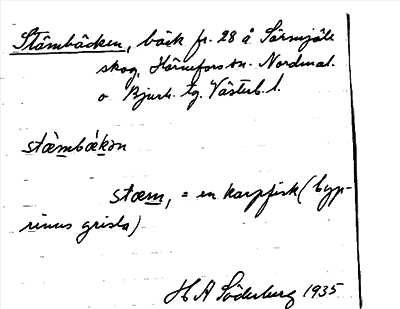 Stämbäcken, bäck fr. 28 å Sörmjöle
skog, Hörnefors sn. Nordmal.
o. Bjurh. tg. Västerb. l.
stæ̀mbǽkən
stæm, = en karpfisk (Cyp-
rinus grisla)
H A Söderberg 1935